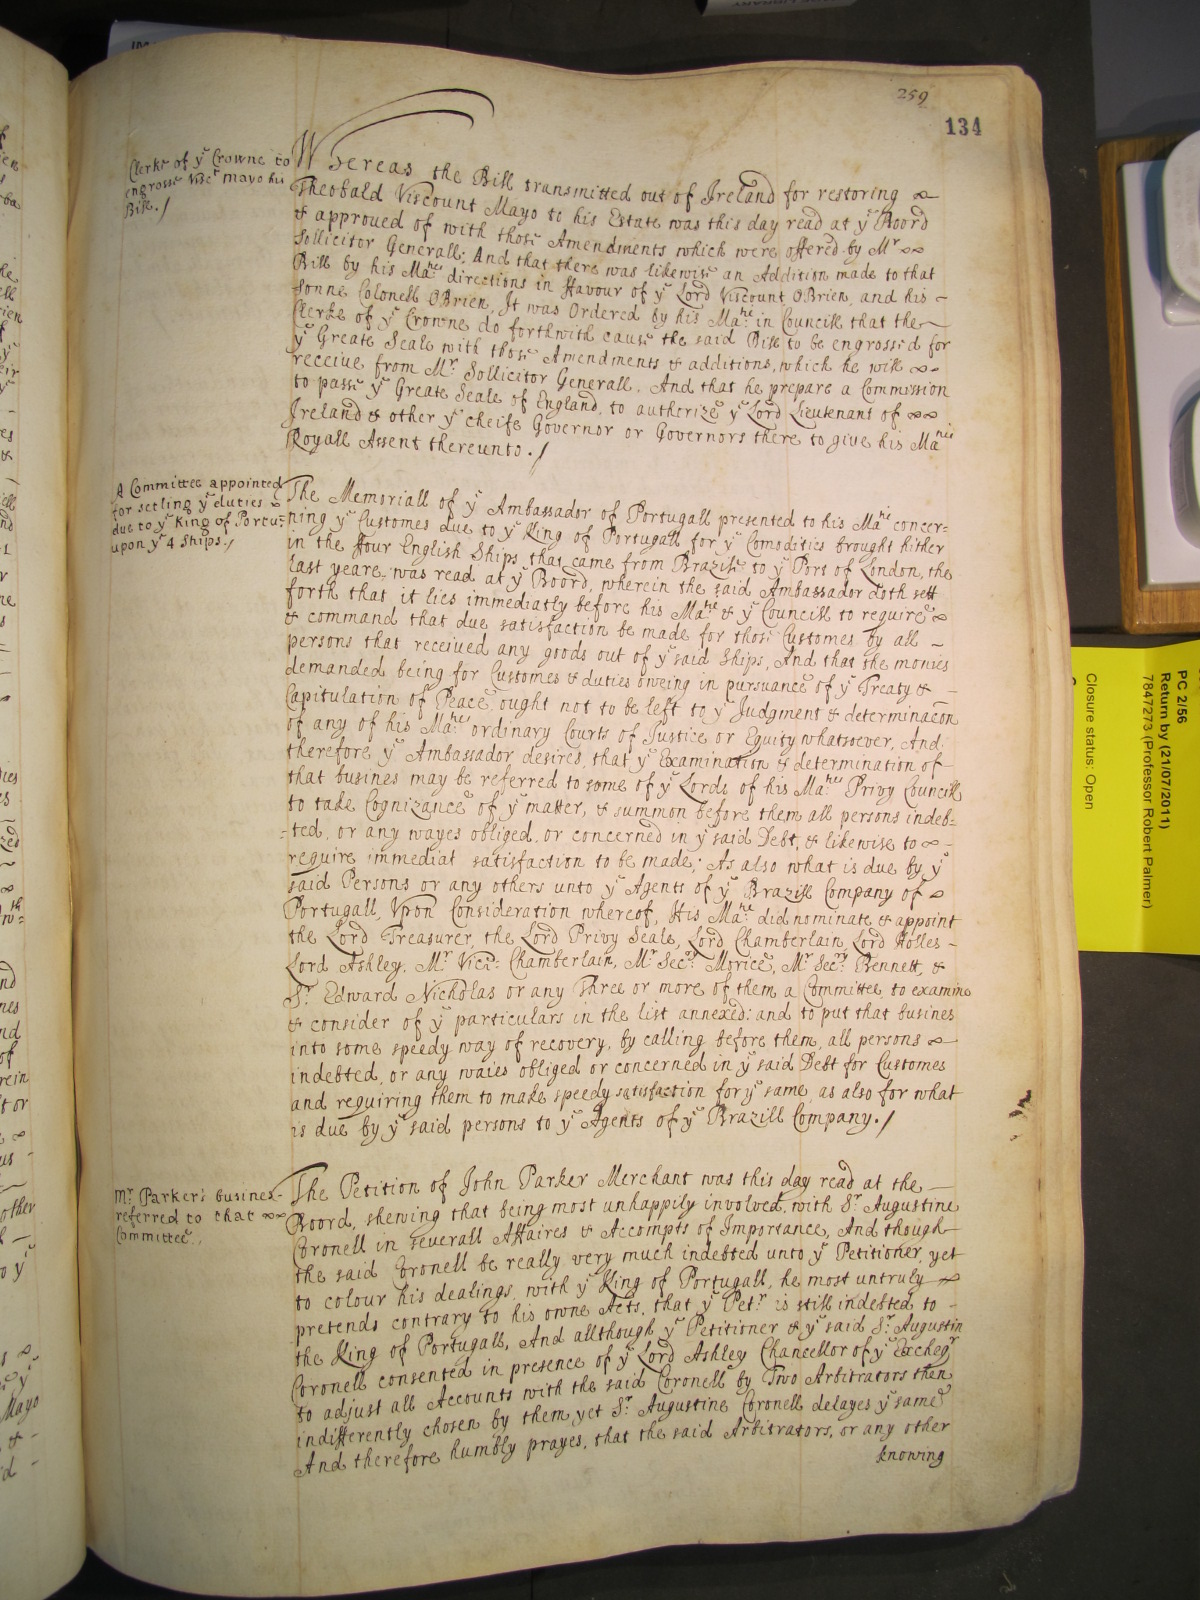 259
134
Clerke of yͤ Crowne to
engrosse Viscᵗ mayo his
Bill./
Whereas the Bill transmitted out of Ireland for restoring
Theobald Viscount Mayo to his Estate was this day read at yͤ Boord
& approved of with those Amendments which were offered by Mʳ
Sollicitor Generall; And that there was likewise an Addition made to that
Bill by his Maᵗⁱᵉˢ directions in favour of yͤ Lord Viscount OBrien, and his
sonne Colonell OBrien, It was Ordered by his Maᵗⁱᵉ in Councill that the
Clerke of yͤ Crowne do forthwith cause the said Bill to be engrossed for
yͤ Greate Seale with those Amendments & additions, which he will
receive from Mʳ Sollicitor Generall. And that he prepare a Commission
to passe yͤ Greate Seale of England, to authorize yͤ Lord Lieutenant of
Ireland & other yͤ cheife Governor or Governors there to give his Maᵗⁱᵉˢ
Royall Assent thereunto./
A Committee appointed
for setling yͤ duties
due to yͤ King of Portu-
upon yͤ 4 Ships./
The Memoriall of yͤ Ambassador of Portugall presented to his Maᵗⁱᵉ concer=
ning yͤ Customes due to yͤ King of Portugall for yͤ Comodities brought hither
in the ffour English Ships that came from Brazill to yͤ Port of London, the
last yeare, was read at yͤ Boord, wherein the said Ambassador doth sett
forth that it lies immediatly before his Maᵗⁱᵉ & yͤ Councill to require
& command that due satisfaction be made for those Customes by all
persons that received any goods out of yͤ said Ships, And that the monies
demanded being for Customes & duties oweing in pursuance of yͤ Treaty &
Capitulation of Peace, ought not to be left to yͤ Judgment & determinacon
of any of his Maᵗⁱᵉˢ ordinary Courts of Justice or Equity whatsoever, And
therefore yͤ Ambassador desires, that yͤ Examination & determination of
that busines may be referred to some of yͤ Lords of his Maᵗⁱᵉˢ Privy Councill
to take Cognizance of yͤ matter, & summon before them all persons indeb=
=ted, or any wayes obliged, or concerned in yͤ said Debt, & likewise to
require immediat satisfaction to be made; As also what is due by yͤ
said Persons or any others unto yͤ Agents of yͤ Brazill Company of
Portugall, Vpon Consideration whereof, His Maᵗⁱᵉ did nominate & appoint
the Lord Treasurer, the Lord Privy Seale, Lord Chamberlain, Lord Holles
Lord Ashley, Mʳ Vice: Chamberlain, Mʳ Secʳʸ Morice, Mʳ Secʳʸ Bennett, &
Sʳ Edward Nicholas or any Three or more of them a Committee to examine
& consider of yͤ particulars in the list annexed: and to put that busines
into some speedy way of recovery, by calling before them, all persons
indebted, or any waies obliged or concerned in yͤ said Debt for Customes
and requiring them to make speedy satisfaction for yͤ same, as also for what
is due by yͤ said persons to yͤ Agents of yͤ Brazill Company./
Mʳ Parker's busines
referred to that
Committee.
The Petition of John Parker Merchant was this day read at the
Boord, shewing that being most unhappily involved, with Sʳ Augustine
Coronell in severall Affaires & Accompts of Importance, And though
the said Coronell be really very much indebted unto yͤ Petitioner, yet
to colour his dealings, with yͤ King of Portugall, he most untruly
pretends contrary to his owne Acts, that yͤ Petʳ is still indebted to
the King of Portugall, And allthough yͤ Petitioner & yͤ said Sʳ Augustin
Coronell consented in presence of yͤ Lord Ashley Chancellor of yͤ Excheqʳ
to adjust all Accounts with the said Coronell by Two Arbitrators then
indifferently chosen by them, yet Sʳ Augustine Coronell delayes yͤ same
And therefore humbly prayes, that the said Arbitrators, or any other
knowing
PC 2/56
Return by (21/07/2011)
7847273 (Professor Robert Palmer)
Closure status: Open